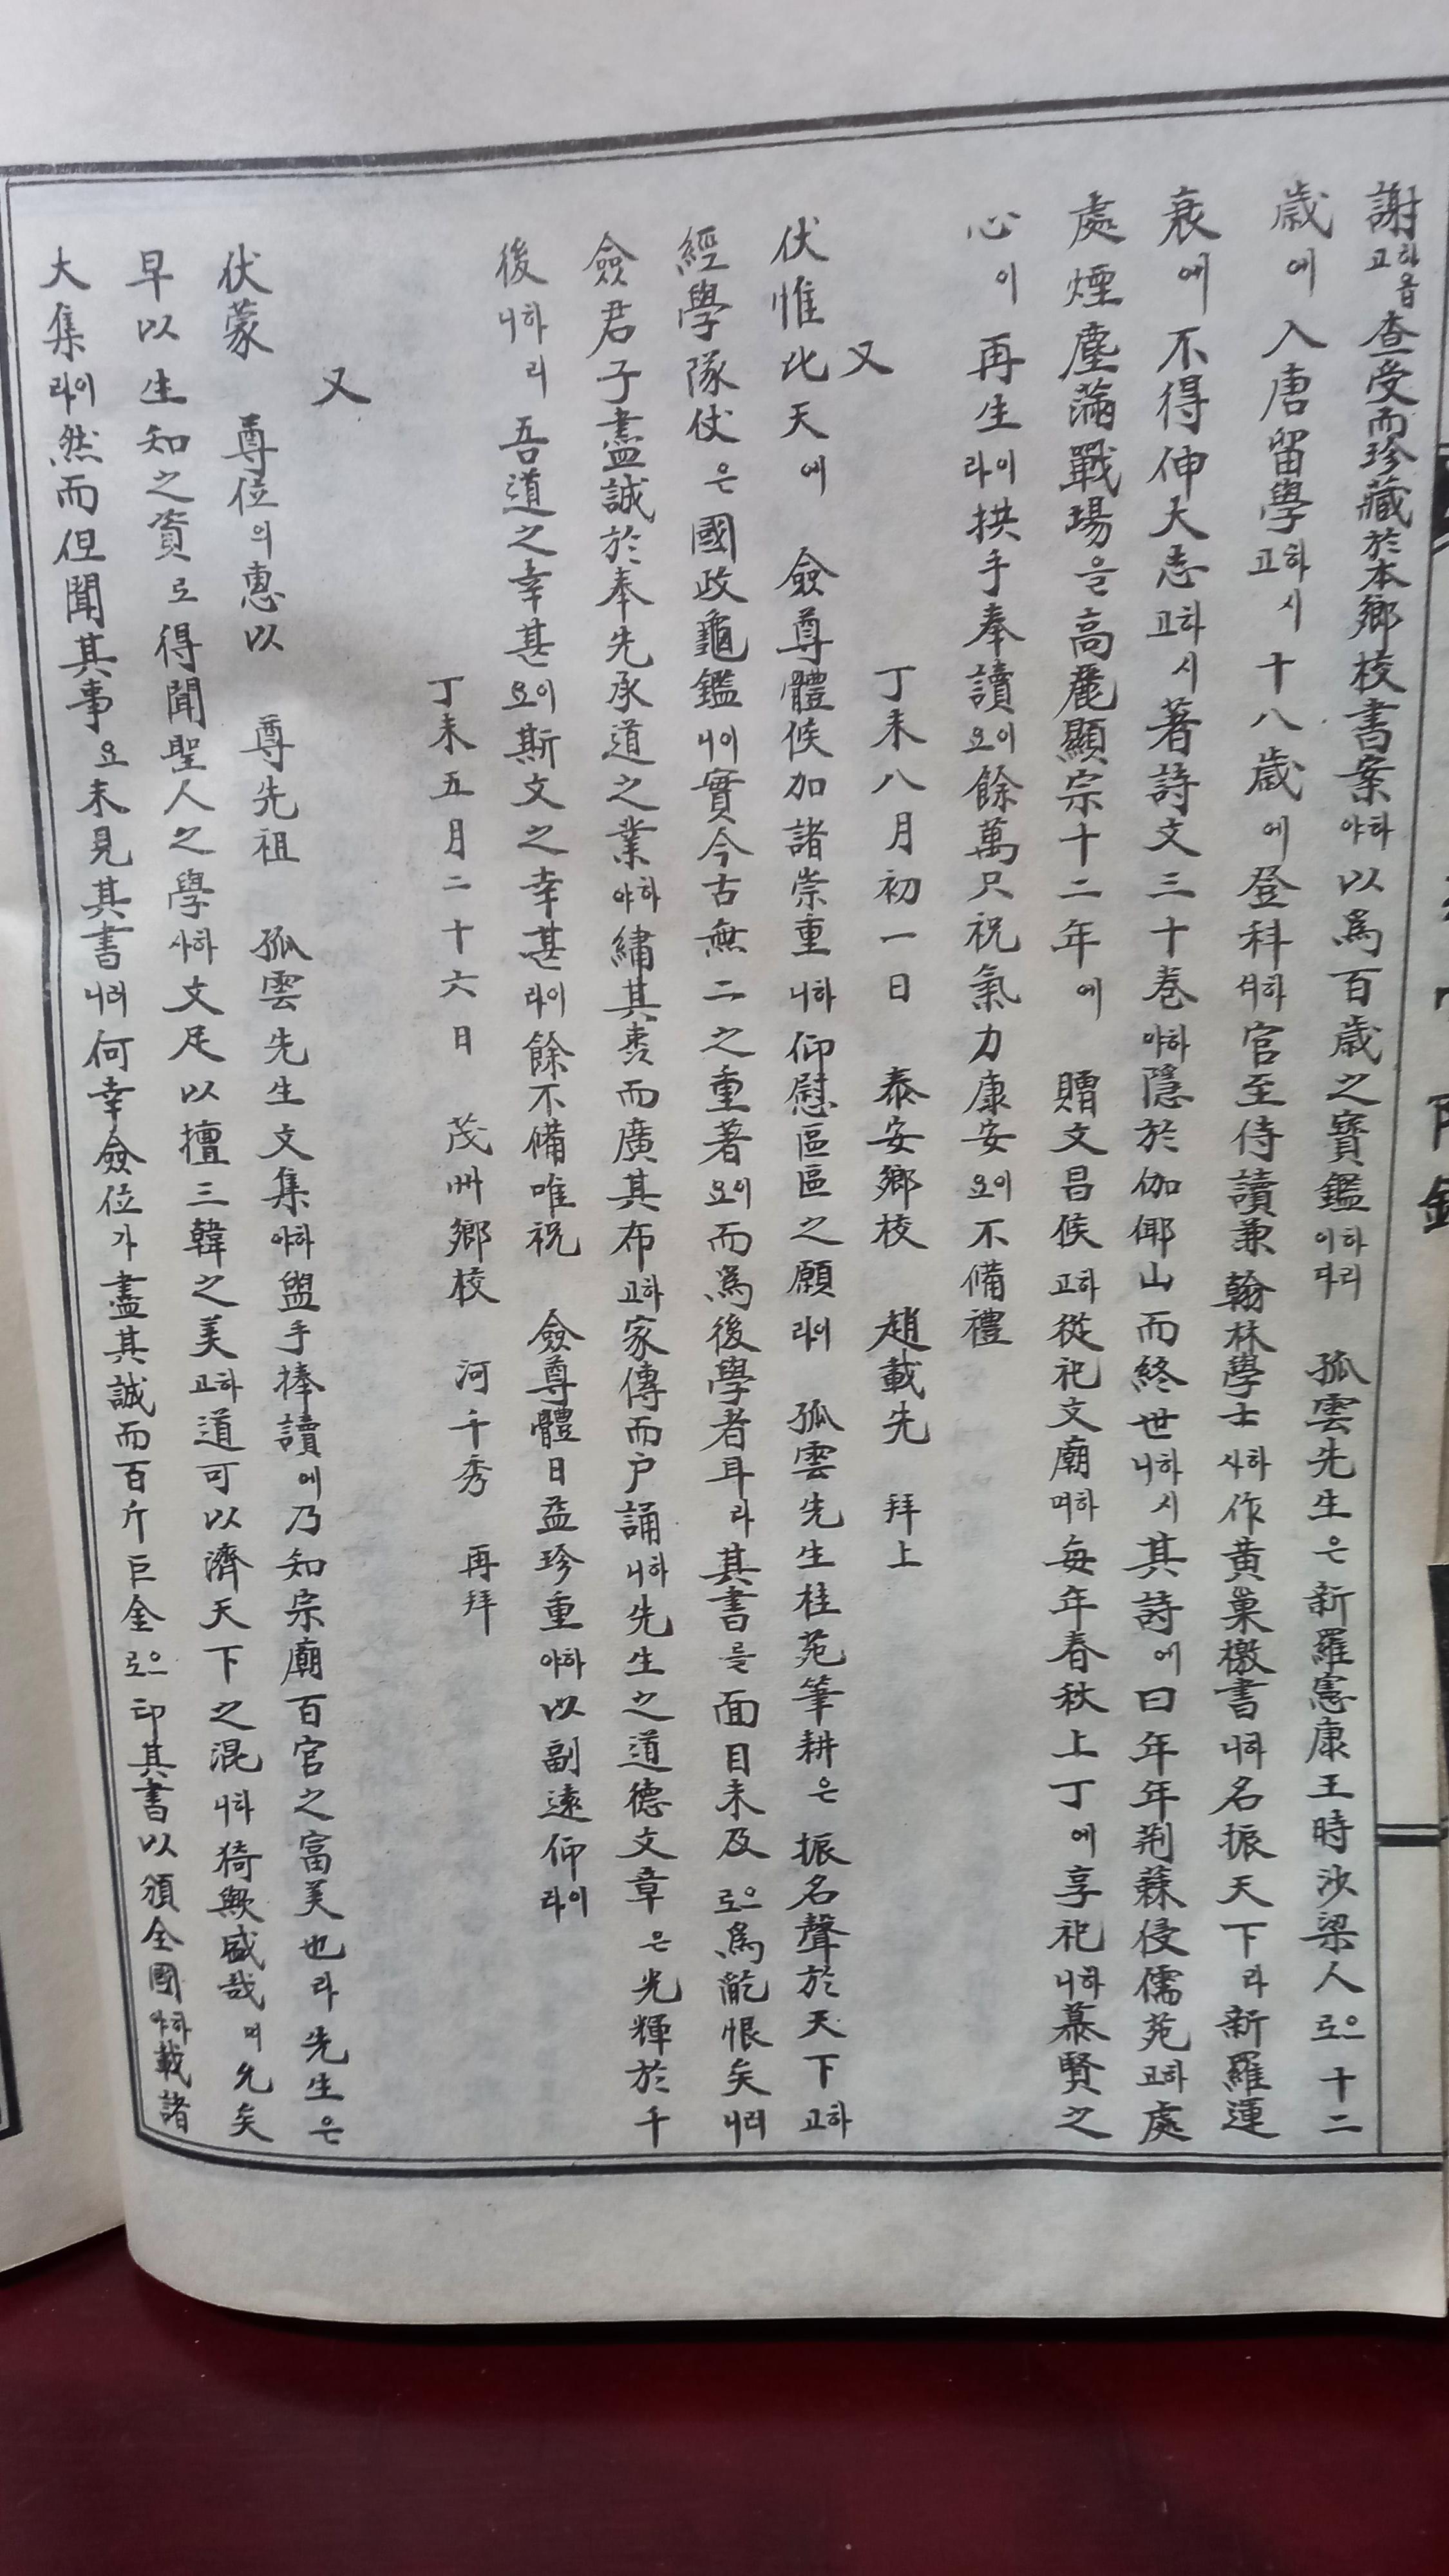 謝고하옵査受而珍藏於本鄕校書案하야以爲百歲之寶鑑이하리다 孤雲先生은新羅憲康王時沙梁人으로十二
歲에入唐留學하고시十八歲에登科하셔官至侍讀兼翰林學士하사作黃巢檄書하니名振天下라新羅運
衰에不得伸大志하고시著詩文三十卷하야隱於伽倻山而終世하니시其詩에曰年年荊蕀侵儒苑하고處
處煙塵滿戰場을高麗顯宗十二年에 贈文昌候하고從祀文廟하며每年春秋上丁에享祀하니慕賢之
心이再生이라拱手奉讀이오餘萬只祝氣力康安이오不備禮
丁未八月初一日 泰安鄕校 趙載先 拜上
又
伏惟比天에 僉尊體候加諸崇重하니仰慰區區之願이라 孤雲先生桂苑筆耕은振名聲於天下하고
經學隊仗은國政龜鑑이니實今古無二之重著이오而爲後學者耳라其書를面目未及으로爲齕恨矣러니
僉君子盡誠於奉先承道之業하야繡其袠而廣其布하고家傳而户誦하니先生之道德文章은光輝於千
後하니리吾道之幸甚이오斯文之幸甚이라餘不備唯祝 僉尊體日益珍重하야以副遠仰이라
丁未五月二十六日 茂州鄕校 河千秀 再拜
又
伏蒙 尊位의惠以 尊先祖 孤雲先生文集하야盥手捧讀에乃知宗廟百官之富美也라先生은
早以生知之資로得聞聖人之學하사文足以擅三韓之美하고道可以濟天下之混하니猗歟盛哉며允矣
大集이라然而但聞其事요未見其書러니何幸僉位가盡其誠而百斤巨金으로印其書以頒全國하야載諸